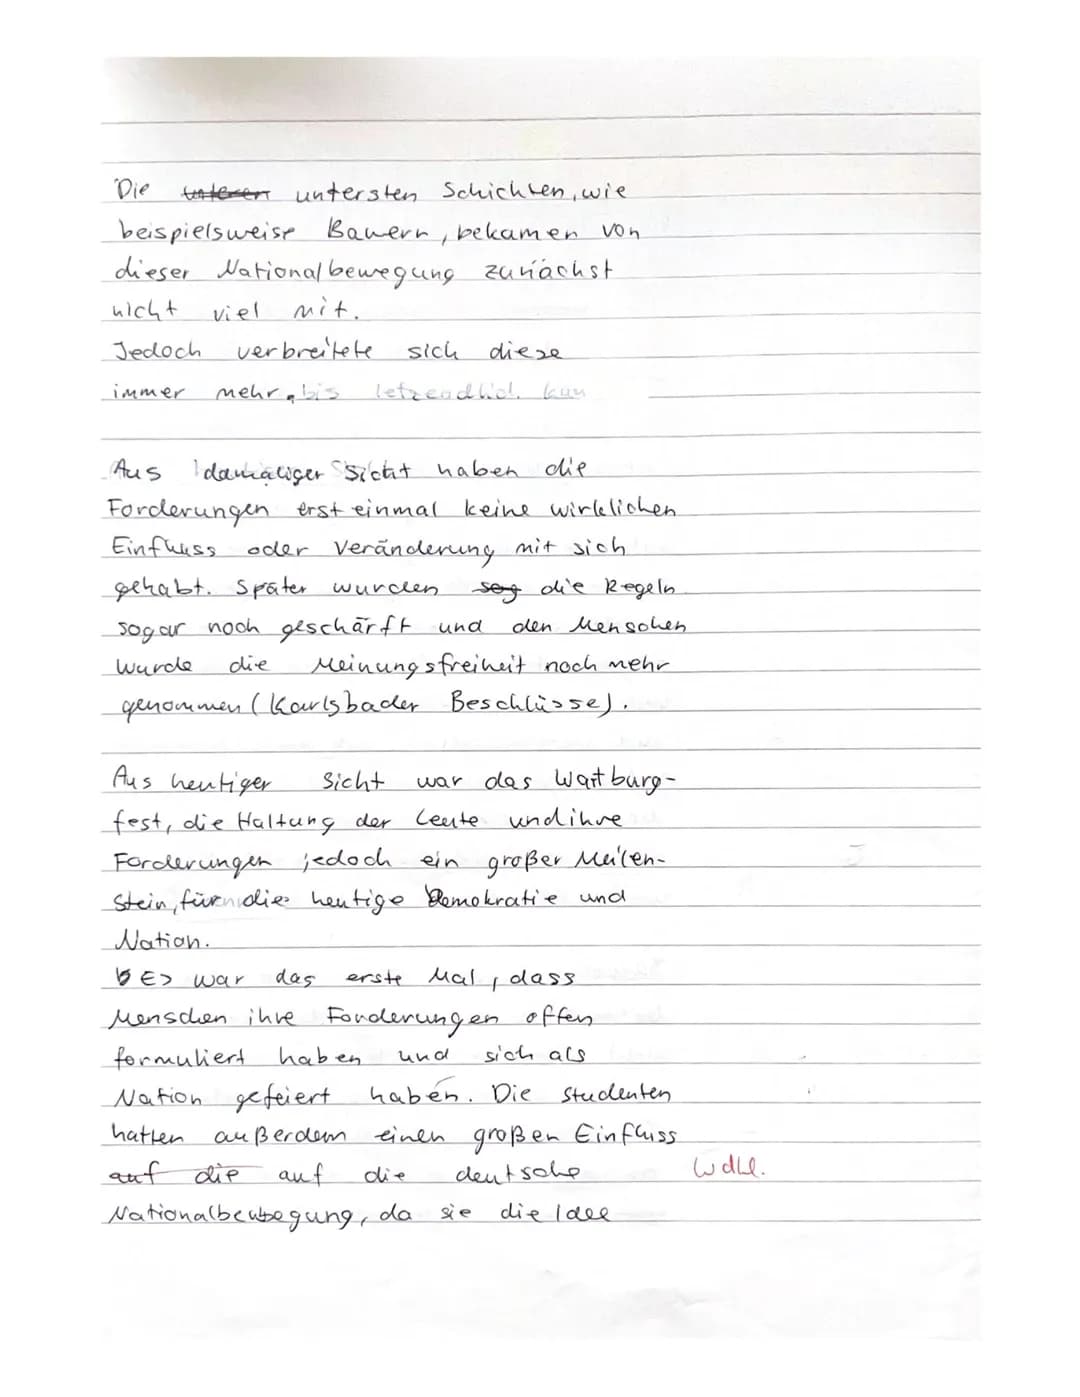 Die unteren untersten Schichten, wie
beispielsweise Bauern, bekamen von
dieser Nationalbewegung zunächst
nicht viel mit.
Jedoch verbreitete sich diese
immer mehr, bis letzendlich kam
Aus damaliger Sicht haben die
Forderungen erst einmal keine wirklichen
Einfluss oder Veränderung mit sich
gehabt. Später wurden sog die Regeln
sogar noch geschärft und den Menschen
wurde die Meinungsfreiheit noch mehr
genommen (Karlsbader Beschlüsse).
Aus heutiger Sicht war das Wartburg-
fest, die Haltung der Leute und ihre
Forderungen jedoch ein großer Meilen-
stein, für die heutige Demokratie und
Nation.
Es war das erste Mal, dass
Menschen ihre Forderungen offen
formuliert haben und sich als
Nation gefeiert haben. Die Studenten
hatten außerdem einen großen Einfluss
auf die auf die deutsche Wdh.
Nationalbewegung, da sie die Idee